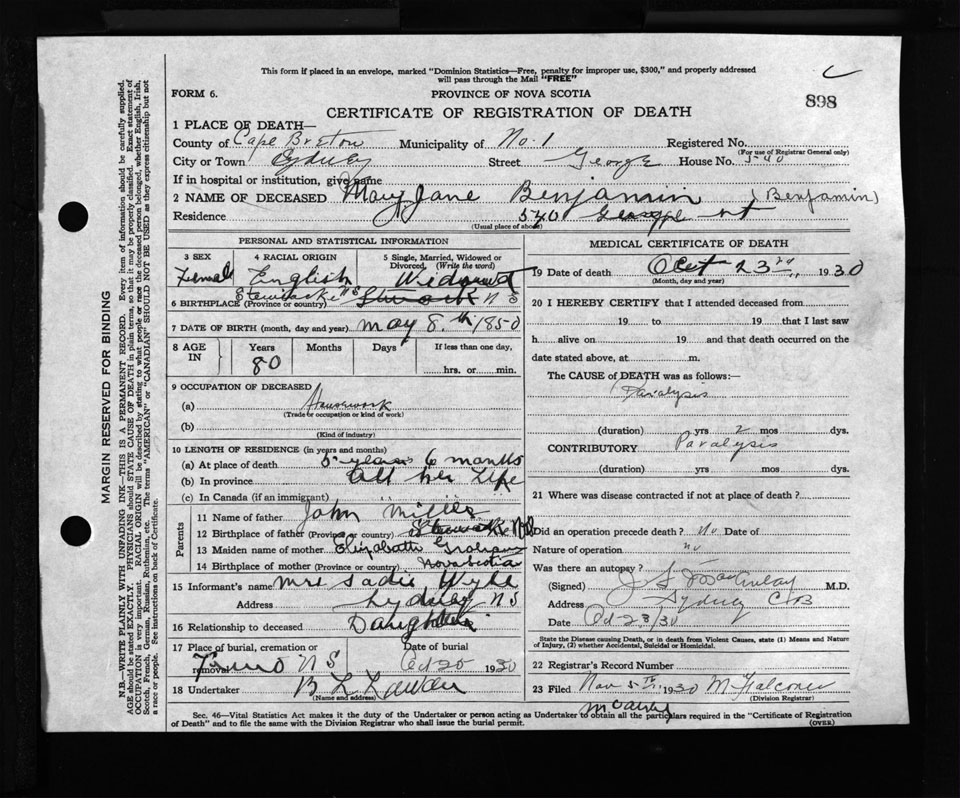 This form if placed in an envelope, marked "Dominion Statistics—Free, penalty for improper use, $300," and properly addressed
will pass through the Mail "FREE"
FORM 6.
PROVINCE OF NOVA SCOTIA
898
CERTIFICATE OF REGISTRATION OF DEATH
1 PLACE OF DEATH—
County of Cape Breton Municipality of No. 1 Registered No.
(For use of Registrar General only)
City or Town Sydney Street George House No. 540
If in hospital or institution, give name
2 NAME OF DECEASED Mary Jane Benjamin (Benjamin)
Residence 540 George st
(Usual place of abode)
PERSONAL AND STATISTICAL INFORMATION
3 SEX 4 RACIAL ORIGIN 5 Single, Married, Widowed or Divorced, (Write the word)
Female English Widowed
6 BIRTHPLACE (Province or country) Stewiacke NS NS
7 DATE OF BIRTH (month, day and year) May 8th 1850
8 AGE IN Years Months Days If less than one day,
80 hrs. or min.
9 OCCUPATION OF DECEASED
(a) Housework
(Trade or occupation or kind of work)
(b)
(Kind of industry)
10 LENGTH OF RESIDENCE (in years and months)
(a) At place of death 5 years 6 months
(b) In province All her Life
(c) In Canada (if an immigrant)
Parents
11 Name of father John Miller
12 Birthplace of father (Province or country)
13 Maiden name of mother Elizabeth
14 Birthplace of mother (Province or country) Nova Scotia
15 Informant's name Mrs Sadie
Address Sydney NS
16 Relationship to deceased Daughter
17 Place of burial, cremation or removal Date of burial
Truro NS Oct 25 1930
18 Undertaker B L
(Name and address)
MEDICAL CERTIFICATE OF DEATH
19 Date of death Oct 23rd, 1930
(Month, day and year)
20 I HEREBY CERTIFY that I attended deceased from
19 to 19 that I last saw
h alive on 19 and that death occurred on the
date stated above, at m.
The CAUSE of DEATH was as follows:—
Paralysis
(duration) yrs 2 mos dys.
CONTRIBUTORY Paralysis
(duration) yrs. mos. dys.
21 Where was disease contracted if not at place of death?
Did an operation precede death? No Date of
Nature of operation no
Was there an autopsy?
(Signed) M.D.
Address Sydney CB
Date Oct 23/30
State the Disease causing Death, or in death from Violent Causes, state (1) Means and Nature of Injury, (2) whether Accidental, Suicidal or Homicidal.
22 Registrar's Record Number
23 Filed Nov 5th, 1930 M Falconer
(Division Registrar)
McAulay
Sec. 46—Vital Statistics Act makes it the duty of the Undertaker or person acting as Undertaker to obtain all the particulars required in the "Certificate of Registration
of Death" and to file the same with the Division Registrar who shall issue the burial permit.
(OVER)
MARGIN RESERVED FOR BINDING
N.B.—WRITE PLAINLY WITH UNFADING INK—THIS IS A PERMANENT RECORD. Every item of information should be carefully supplied.
AGE should be stated EXACTLY. PHYSICIANS should STATE CAUSE OF DEATH in plain terms, so that it may be properly classified. Exact statement of
OCCUPATION is very important. RACIAL ORIGIN will be described by stating to what people or race the deceased person belonged, whether English, Irish,
Scotch, French, German, Russian, Ruthenian, etc. The terms "AMERICAN" or "CANADIAN" SHOULD NOT BE USED as they express citizenship but not
a race or people. See instructions on back of Certificate.